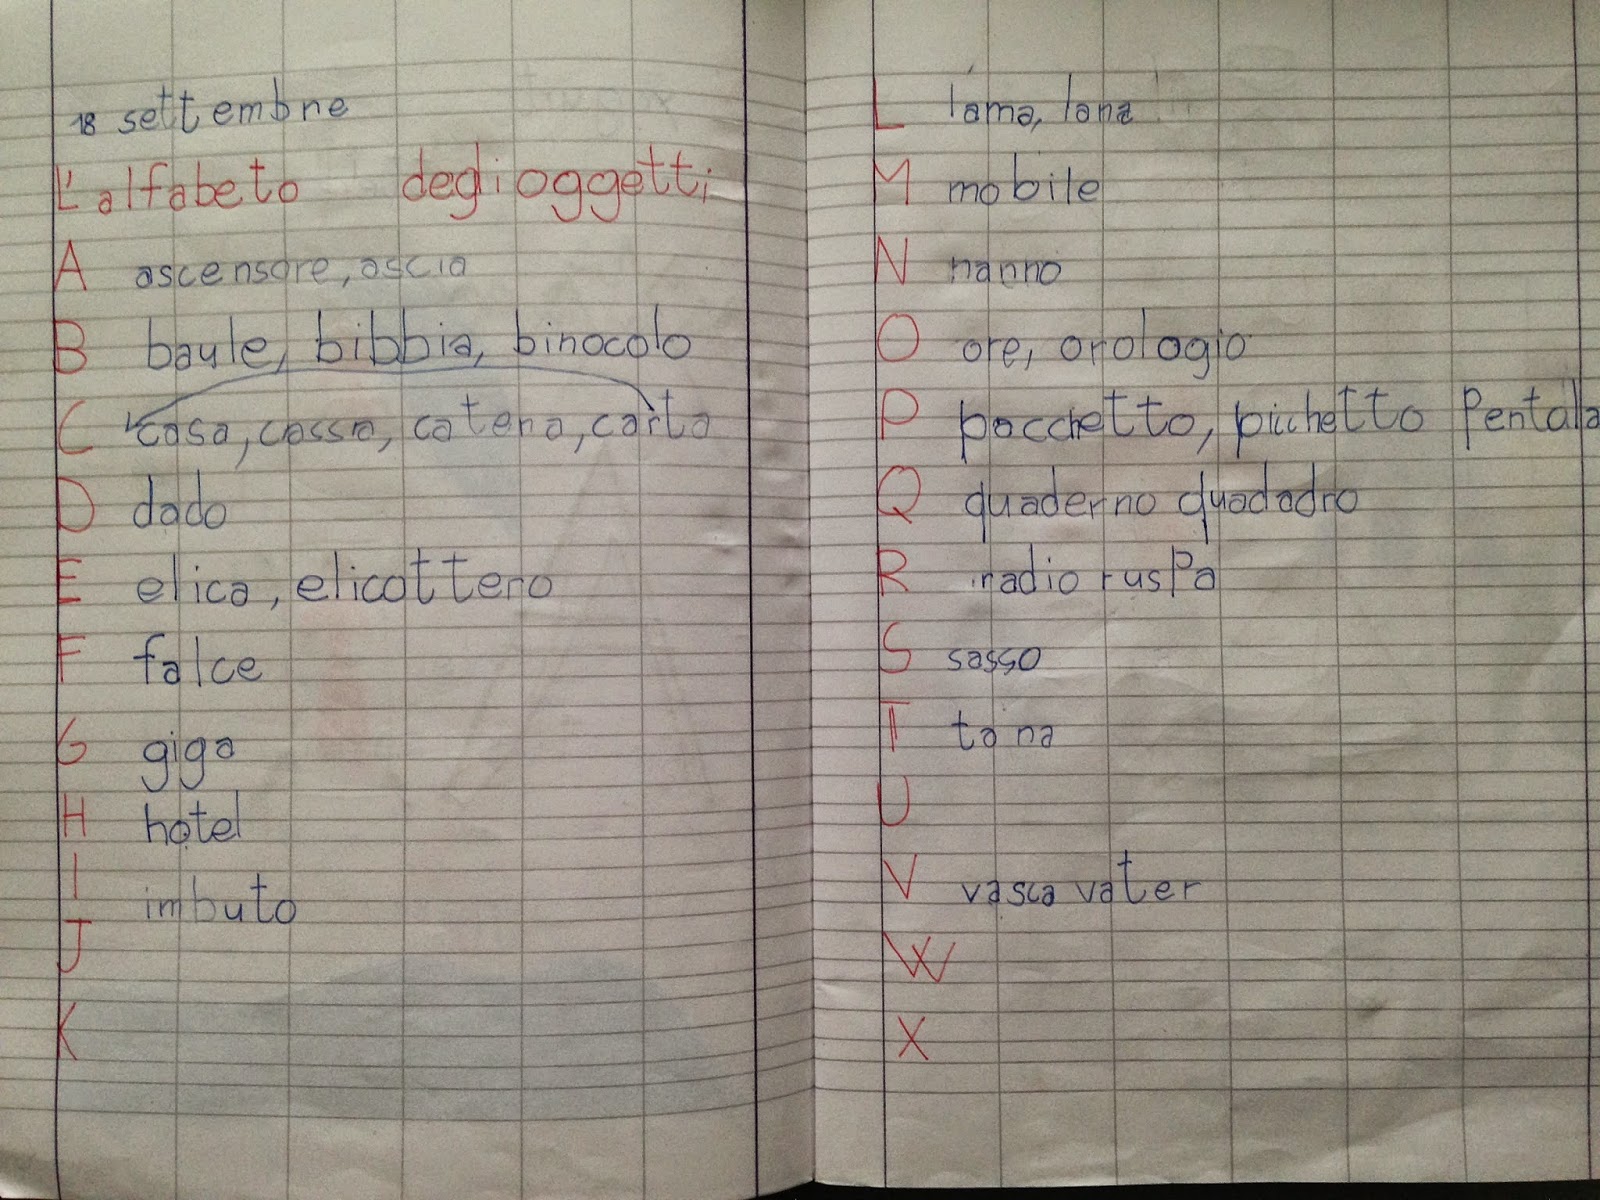 18 settembre
L'alfabeto degli oggetti
A ascensore, ascia
B baule, bibbia, binocolo
C casa, cassa, catena, carta
D dado
E elica, elicottero
F falce
G giga
H hotel
I imbuto
J
K
L lama, lana
M mobile
N nanno
O ore, orologio
P pacchetto, picchetto Pentola
Q quaderno quadadro
R radio ruspa
S sasso
T tana
U
V vasca vater
W
X